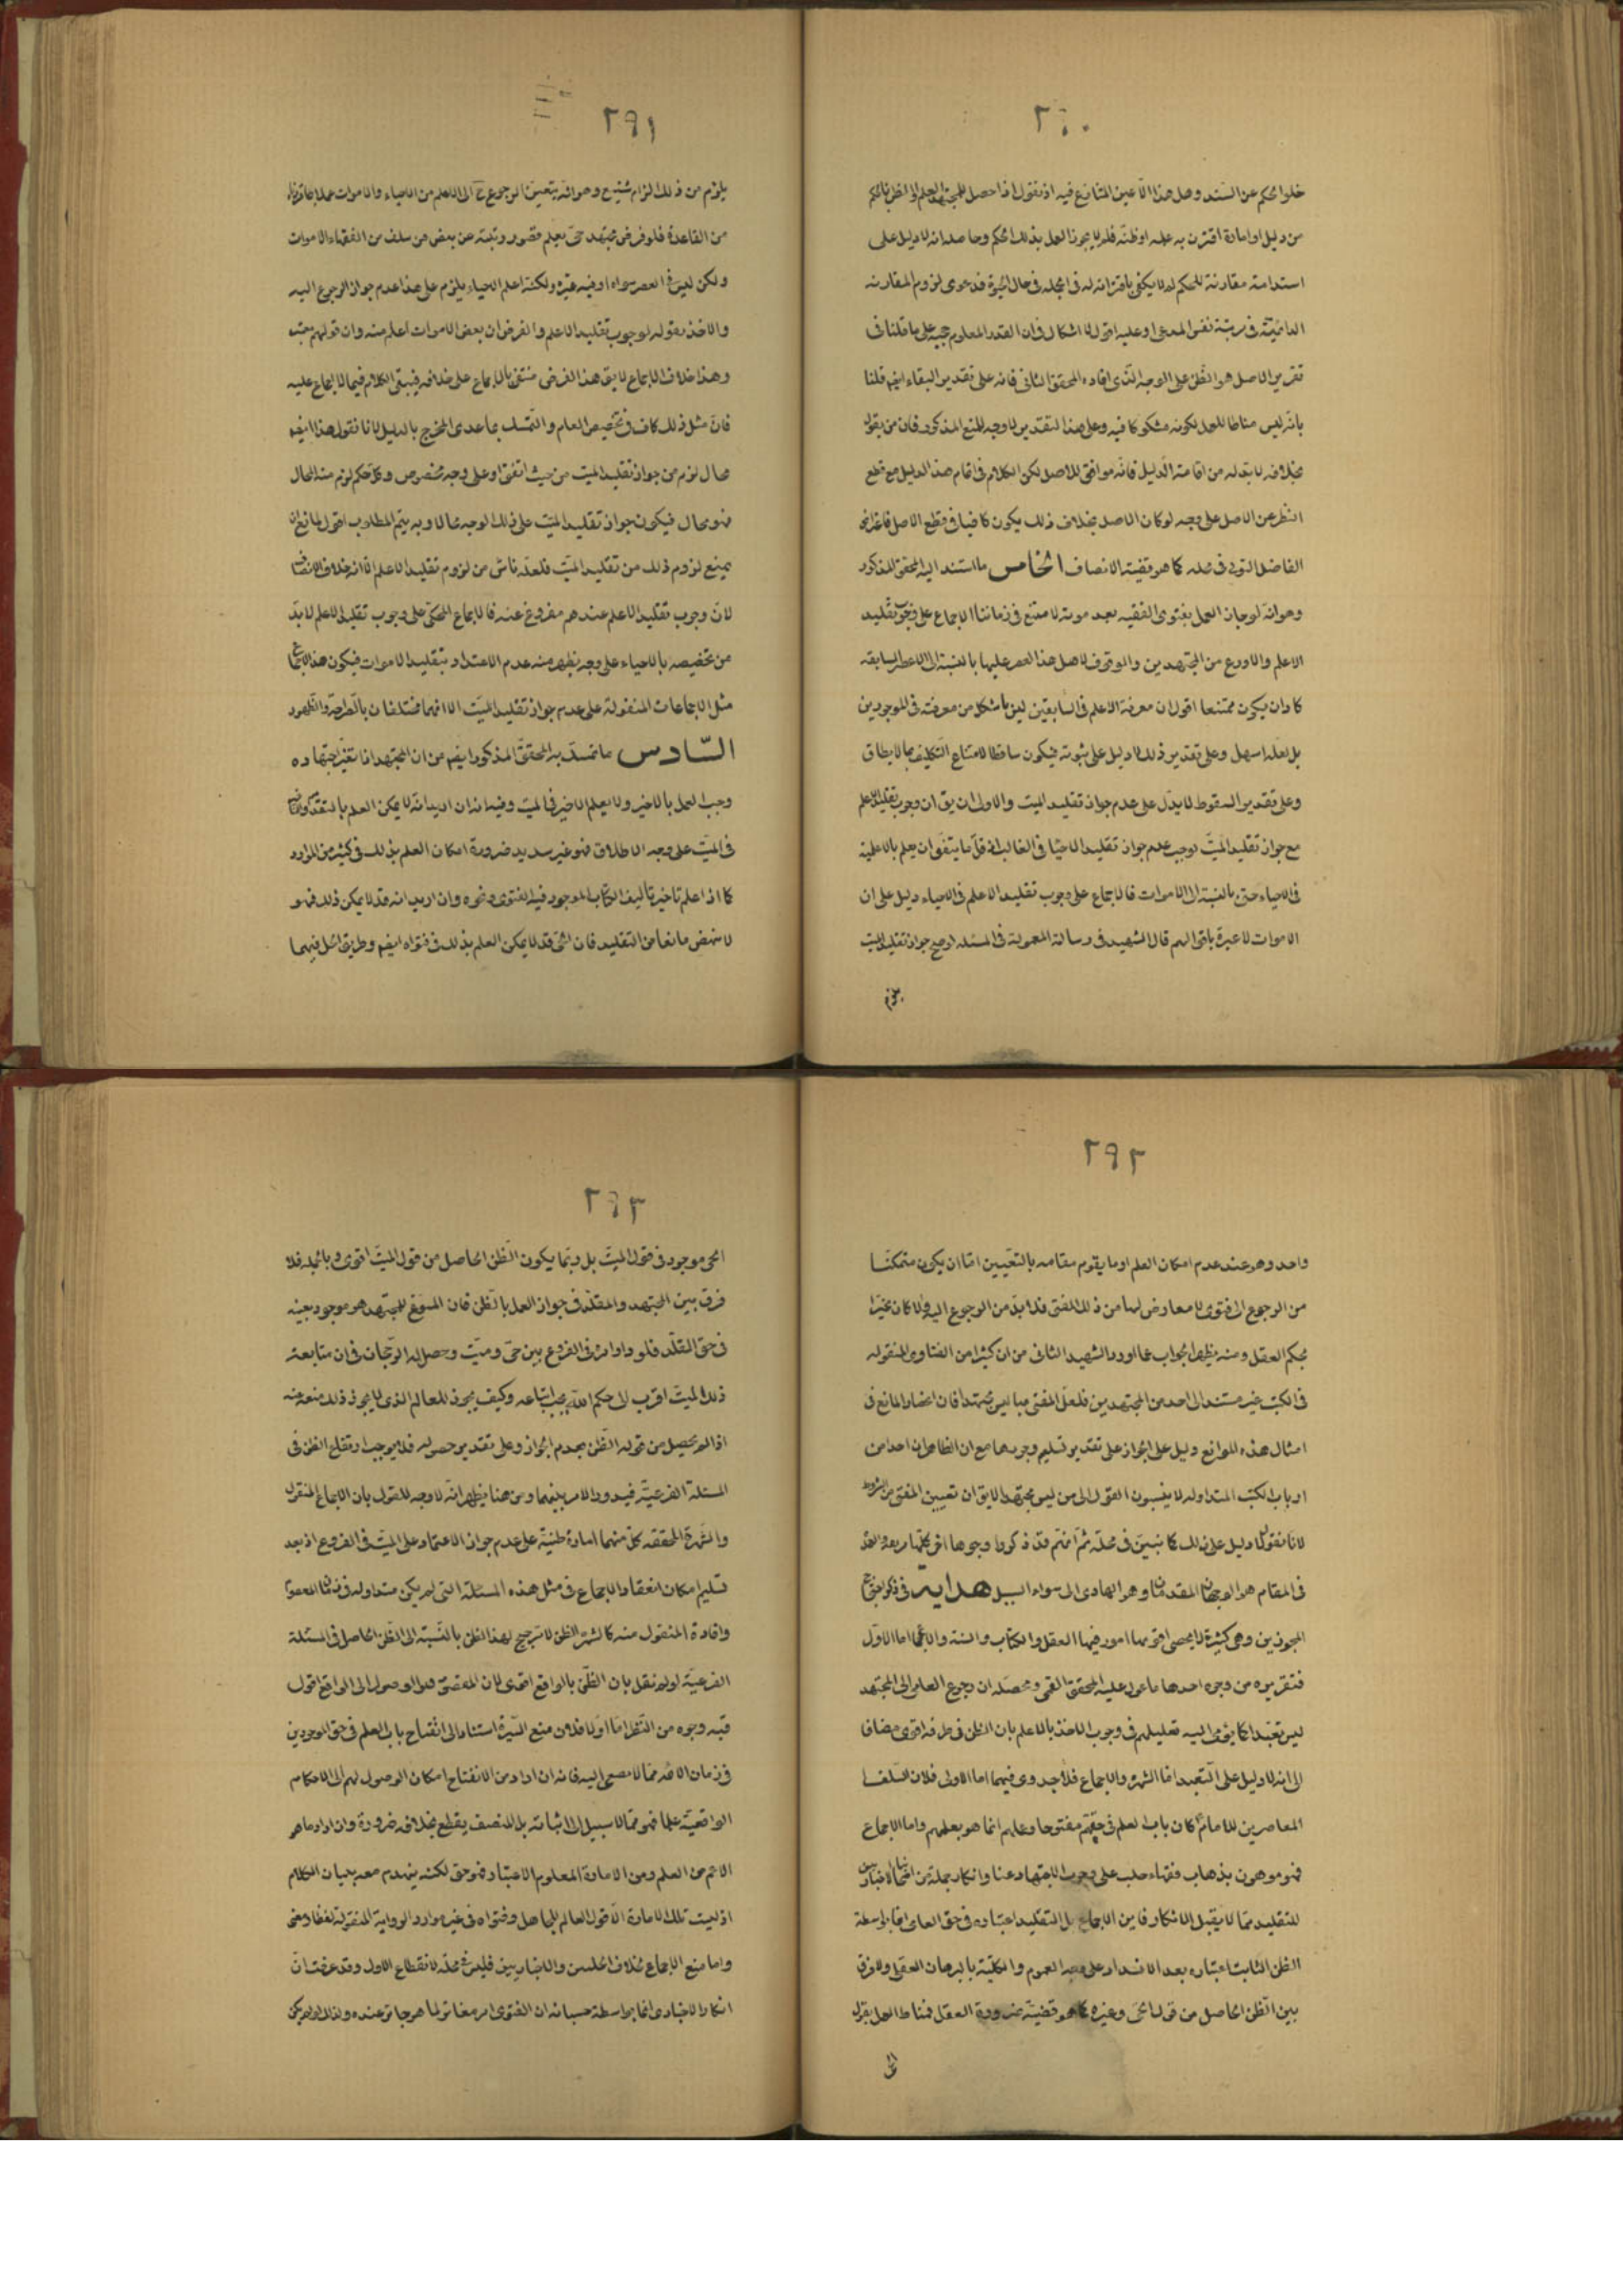 ٢٩٠
خلو الحكم عن السند وهل هذا الا عين المتنازع فيه اذ نقول اذا حصل للمجتهد العلم او الظن بالحكم
من دليل او امارة اقترن به علمه او ظنه فلم لا يجوز العمل بذلك الحكم وحاصله انه لا دليل على
استدامة مقارنة للحكم له لا يكفى باقترانه له فى الجملة فى حال الحيوة فدعوى لزوم المقارنة
الدائمية فى رتبة نفس المدعى او عليه اقول لا اشكال فى ان القدر المعلوم حجيه على ما قلنا فى
تقرير الاصل هو الظن على الوجه الذى افاده المحقق الثانى فانه على تقدير البقاء ايضا قلنا
بانه ليس مناطا للعمل لكونه مشكوكا فيه وعلى هذا التقدير لا وجه للمنع المذكور فان من يقول
بخلافه لا بد له من اقامة الدليل فانه موافق للاصل لكن الكلام فى اتمام هذا الدليل مع قطع
النظر عن الاصل على وجه لو كان الاصل بخلاف ذلك يكون كافيا فى قطع الاصل فما عن
الفاضل التونى فى محله كما هو قضية الانصاف الخامس ما استند اليه المحقق المذكور
وهو انه لو جاز العمل بفتوى الفقيه بعد موته لامتنع فى زماننا الاجماع على وجوب تقليد
الاعلم والاورع من المجتهدين والوقوف لاهل هذا العصر عليها بالنسبة الى الاعصار السابقة
كاد ان يكون ممتنعا اقول ان معرفة الاعلم فى السابقين ليس باشكل من معرفته فى الموجودين
بل لعله اسهل وعلى تقدير ذلك لا دليل على ثبوته فيكون ساقطا لامتناع التكليف بما لا يطاق
وعلى تقدير السقوط لا يدل على عدم جواز تقليد الميت والاولى ان يق ان وجوب تقليد الاعلم
مع جواز تقليد الميت يوجب عدم جواز تقليد الاحيا فى الغالب اذ قل ما يتفق ان يعلم بالاعلمية
فى الاحياء حتى بالنسبة الى الاموات فالاجماع على وجوب تقليد الاعلم فى الاحياء دليل على ان
الاموات لا عبرة باقوالهم قال الشهيد فى رسالته المعمولة فى المسئلة لو صح جواز تقليد الميت
٢٩١
يلزم من ذلك التزام شنيع وهو انه يتعين الرجوع ح الى الاعلم من الاحياء والاموات عملا بما قررناه
من القاعدة فلو فرض مجتهد حى يعلم قصور رتبته عن بعض من سلف من الفقهاء الاموات
ولكن ليس فى العصر سواه او فيه غيره ولكنه اعلم الاحياء يلزم على هذا عدم جواز الرجوع اليه
والاخذ بقوله لوجوب تقليد الاعلم والفرض ان بعض الاموات اعلم منه وان قولهم معتبر
وهذا خلاف الاجماع لا يق هذا الفرض منتفى بالاجماع على خلافه فيبقى الكلام فيما لا اجماع عليه
فان مثل ذلك كاف فى تخصيص العام والتمسك بما عدى المخرج بالدليل لانا نقول هذا ايضا
محال لزم من جواز تقليد الميت من حيث اتفق او على وجه مخصوص وكل حكم لزم منه المحال
فهو محال فيكون جواز تقليد الميت على ذلك الوجه محالا وبه يتم المطلوب اقول لمانع ان
يمنع لزوم ذلك من تقليد الميت فلعله ناش من لزوم تقليد الاعلم الا انه خلاف الانصاف
لان وجوب تقليد الاعلم عندهم مفروغ عنه فالاجماع المحكى على وجوب تقليد الاعلم لا بد
من تخصيصه بالاحياء على وجه يظهر منه عدم الاعتداد بتقليد الاموات فيكون هذا الاجماع
مثل الاجماعات المنقولة على عدم جواز تقليد الميت الا انهما مختلفان بالصراحة والظهور
السادس ما تمسك به المحقق المذكور ايضا من ان المجتهد اذا تغير اجتهاده
وجب العمل بالاخير ولا يعلم الاخير فى الميت وفيه انه ان اريد انه لا يمكن العلم بالتقدم والتاخر
فى الميت على وجه الاطلاق فهو غير سديد ضرورة امكان العلم بذلك فى كثير من الموارد
كما اذا علم تاخير تاليف الكتاب الموجود فيه الفتوى ونحوه وان اريد انه قد لا يمكن ذلك فهو
لا ينهض مانعا من التقليد فان الحى قد لا يمكن العلم بذلك فى فتواه ايضا وطريق الحل فيهما
٢٩٢
واحد وهو عند عدم امكان العلم او ما يقوم مقامه بالتعيين اما ان يكون متمكنا
من الرجوع الى فتوى لا معارض لها من ذلك المفتى فلا بد من الرجوع اليه والا كان مخيرا
بحكم العقل ومنه يظهر الجواب عما اورد الشهيد الثانى من ان كثيرا من الفتاوى المنقولة
فى الكتب غير مستند الى احد من المجتهدين فلعل المفتى بها ليس مجتهدا فان انحصار المانع فى
امثال هذه الموانع دليل على الجواز على تقدير تسليم وجودها مع ان الظاهر ان احدا من
ارباب الكتب المتداولة لا ينسبون القول الى من ليس مجتهدا لا يق ان تعيين المفتى من الشروط
لانا نقول لا دليل على ذلك كما نبين فى محله ثم انهم قد ذكروا وجوها اخر كلها مزيفة والعمدة
فى المقام هو الوجهان المقدمان وهو الهادى الى سواء السبيل هداية فى ذكر احتجاج
المجوزين وهى كثيرة لا يحصى اقويها امور فيها العقل والكتاب والسنة والاجماع اما الاول
فتقريره من وجوه احدها ما عول عليه المحقق القمى ومحصله ان رجوع العامى الى المجتهد
ليس تعبدا كما يومى اليه تعليلهم فى وجوب الاخذ بالاعلم بان الظن فى طرفه اقوى مضافا
الى انه لا دليل على التعبد اما الشهرة والاجماع فلا جدوى فيهما اما الاولى فلان السلف
المعاصرين للامام كان باب العلم فى حقهم مفتوحا وعملهم انما هو بعلمهم واما الاجماع
فهو موهون بذهاب فقهاء حلب على وجوب الاجتهاد عينا وانكار جملة من اصحابنا الاخباريين
للتقليد مما لا يقبل الانكار فاين الاجماع بل التقليد اعتباره فى حق العامى انما بواسطة
الظن الثابت اعتباره بعد الانسداد على وجه العموم والكلية بالبرهان العقلى ولا فرق
بين الظن الحاصل من قول الحى وغيره كما هو قضية ضرورة العقل فمناط العمل بقول
٢٩٣
الحى موجود فى قول الميت بل ربما يكون الظن الحاصل من قول الميت اقوى وبالجملة فلا
فرق بين المجتهد والمقلد فى جواز العمل بالظن فان المسوغ للمجتهد هو موجود بعينه
فى حق المقلد فلو دار امره فى الفروع بين حى وميت وحصل له الرجحان فى ان متابعة
ذلك الميت اقرب الى حكم الله يجب اتباعه وكيف يجوز للعالم الذى لا يجوز ذلك منعه عنه
اذا لم يحصل من قوله الظن بعدم الجواز وعلى تقدير حصوله فلا يوجب ارتفاع الظن فى
المسئلة الفرعية فيدور الامر بينهما ومن هنا يظهر انه لا وجه للقول بان الاجماع المنقول
والشهرة المحققة كل منهما امارة ظنية على عدم جواز الاعتماد على الميت فى الفروع اذ بعد
تسليم امكان انعقاد الاجماع فى مثل هذه المسئلة التى لم يكن متداولة فى زمان المعصوم
وافادة المنقول منه كالشهرة الظن لا ترجيح لهذا الظن بالنسبة الى الظن الحاصل فى المسئلة
الفرعية لو لم نقل بان الظن بالواقع اقوى لان المقصود هو الوصول الى الواقع اقول
فيه وجوه من النظر اما اولا فلان منع السيرة استنادا الى انفتاح باب العلم فى حق الموجودين
فى زمان الائمة مما لا يصغى اليه فانه ان اراد من الانفتاح امكان الوصول لهم الى الاحكام
الواقعية علما فهو مما لا سبيل الى اثباته بل المنصف يقطع بخلافه ضرورة وان اراد ما هو
الاعم من العلم ومن الامارة المعلوم الاعتبار فهو حق لكنه ينهدم معه بنيان الكلام
اذ ليست تلك الامارة الا قول العالم للجاهل وفتواه فى غير موارد الرواية المنقولة لفظا ومعنى
واما منع الاجماع بخلاف الحلبيين والاخباريين فليس فى محله لانقطاع الاول وقد عرفت ان
انكار الاخبارى انما بواسطة حسبانه ان الفتوى امر مغاير لما هو جايز عنده ولذلك لو لم يكن